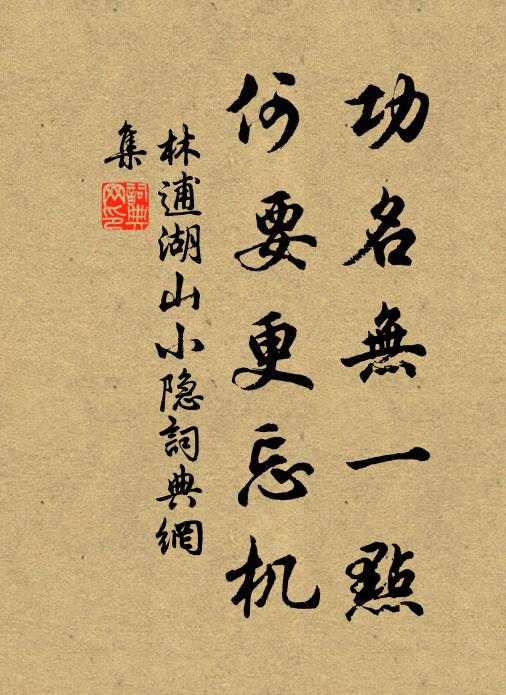 功名無一點
何要更忘机
林逋湖山小隐詞典網
集
詞典
网印